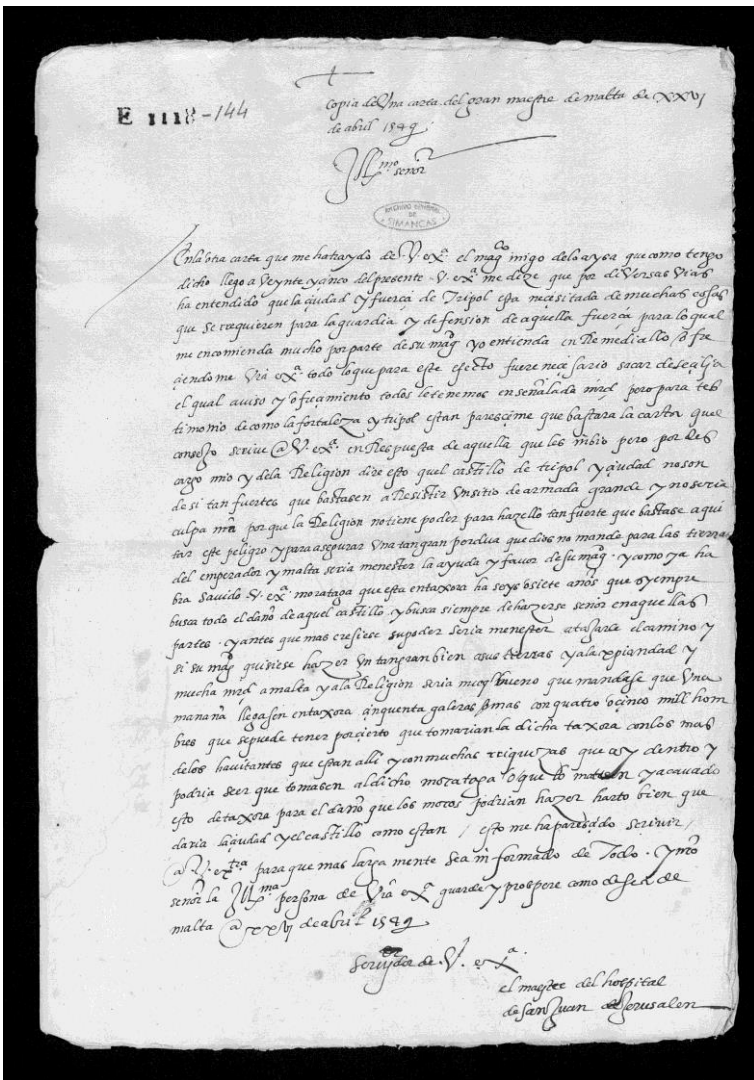 E 1118-144
Copia de Una carta del gran maestre de malta de XXVJ
de abril 1549
Jll^mo señor
ARCHIVO GENERAL DE SIMANCAS
En la otra carta que me ha traydo de .V. ex^a. el mag^co migo de loaysa que como tengo
dicho llego a Veynte y çinco del presente .V. ex^a. me dize que por diVersas Vias
ha entendido que la çiudad y fuerça de Tripol esta necesitada de muchas cossas
que se rrequieren para la guardia y defension de aquella fuerça para lo qual
me encomienda mucho por parte de su mag^t yo entienda en Remediallo ofre
çiendo me Vrã ex^a. todo lo que para este efecto fuere necesario sacar de seçilia
el qual aviso y ofreçimiento todos le tenemos en señalada mrd pero para tes
timonio de como la fortaleza y tripol estan paresçeme que bastara la carta quel
consejo scrive @ V. ex^a. en Respuesta de aquella que les inbio pero por des
cargo mio y dela Religion dire esto quel castillo de tripol y çiudad no son
de si tan fuertes que bastasen a Resistir Un sitio de armada grande y no seria
culpa mĩa porque la Religion no tiene poder para hazello tan fuerte que bastase a qui
tar este peligro y para asegurar Una tan gran perdida que dios no mande para las tierras
del emperador y malta seria menester la ayuda y favor de su mag^t. y como ya ha
bra Savido .V. ex^a. morataga que esta en taxora ha seys o siete años que syempre
busca todo el daño de aquel castillo y busca siempre de hazerse señor en aquellas
partes . y antes que mas cresiese su poder seria menester atajarle el camino y
si su mag^t quisiese hazer Un tan gran bien a sus tierras y a la xpiandad y
mucha mrd a malta y a la Religion seria muy bueno que mandase que Una
mañana llegasen en taxora çinquenta galeras o mas con quatro o çinco mill hom
bres que se puede tener por çierto que tomarian la dicha taxora con los mas
de los havitantes que estan alli y con muchas rriquezas que ay dentro y
podria seer que tomasen al dicho morataga o que lo matasen y acavado
esto de taxora para el daño que los moros podrian hazer harto bien que
daria la çiudad y el castillo como estan / esto me ha paresçido screvir /
@ V. ex^tia para que mas larga mente sea informado de Todo . y nrõ
señor la Jll^ma persona de Vrã ex^a guarde y prospere como desea de
malta @ xxvj de abril 1549
Servidor de .V. ex^a.
el maestre del hospital
de san Juan de Jerusalen